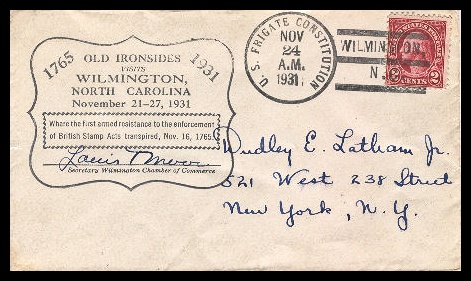 1765 OLD IRONSIDES 1931
VISITS
WILMINGTON,
NORTH CAROLINA
November 21-27, 1931
Where the first armed resistance to the enforcement
of British Stamp Acts transpired, Nov. 16, 1765.
Louis Moore
Secretary Wilmington Chamber of Commerce
U. S. FRIGATE CONSTITUTION
NOV
24
A.M.
1931
WILMINGTON
N.
2 CENTS 2
Dudley E. Latham Jr.
521 West 238 Street
New York, N.Y.